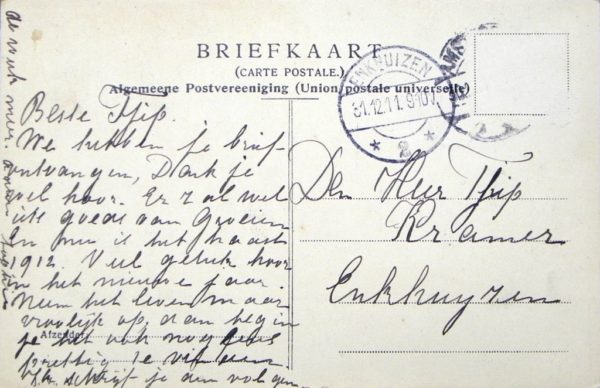 BRIEFKAART
(CARTE POSTALE.)
Algemeene Postvereeniging (Union postale universelle)
ENKHUIZEN
31.12.11. 9-10V
2
Beste Tjip.
We hebben je brief
ontvangen, Dank je
wel hoor. Er zal wel
iets goeds van Groeien
En nu is het haast
1912. Veel geluk hoor
in het nieuwe jaar.
Neem het leven maar
vroolijk op, dan begin
je het ook nog
prettig te vinden.
schrijf je een volgen
de week meer.
Afzender
Den Heer Tjip
Kramer
Enkhuyzen